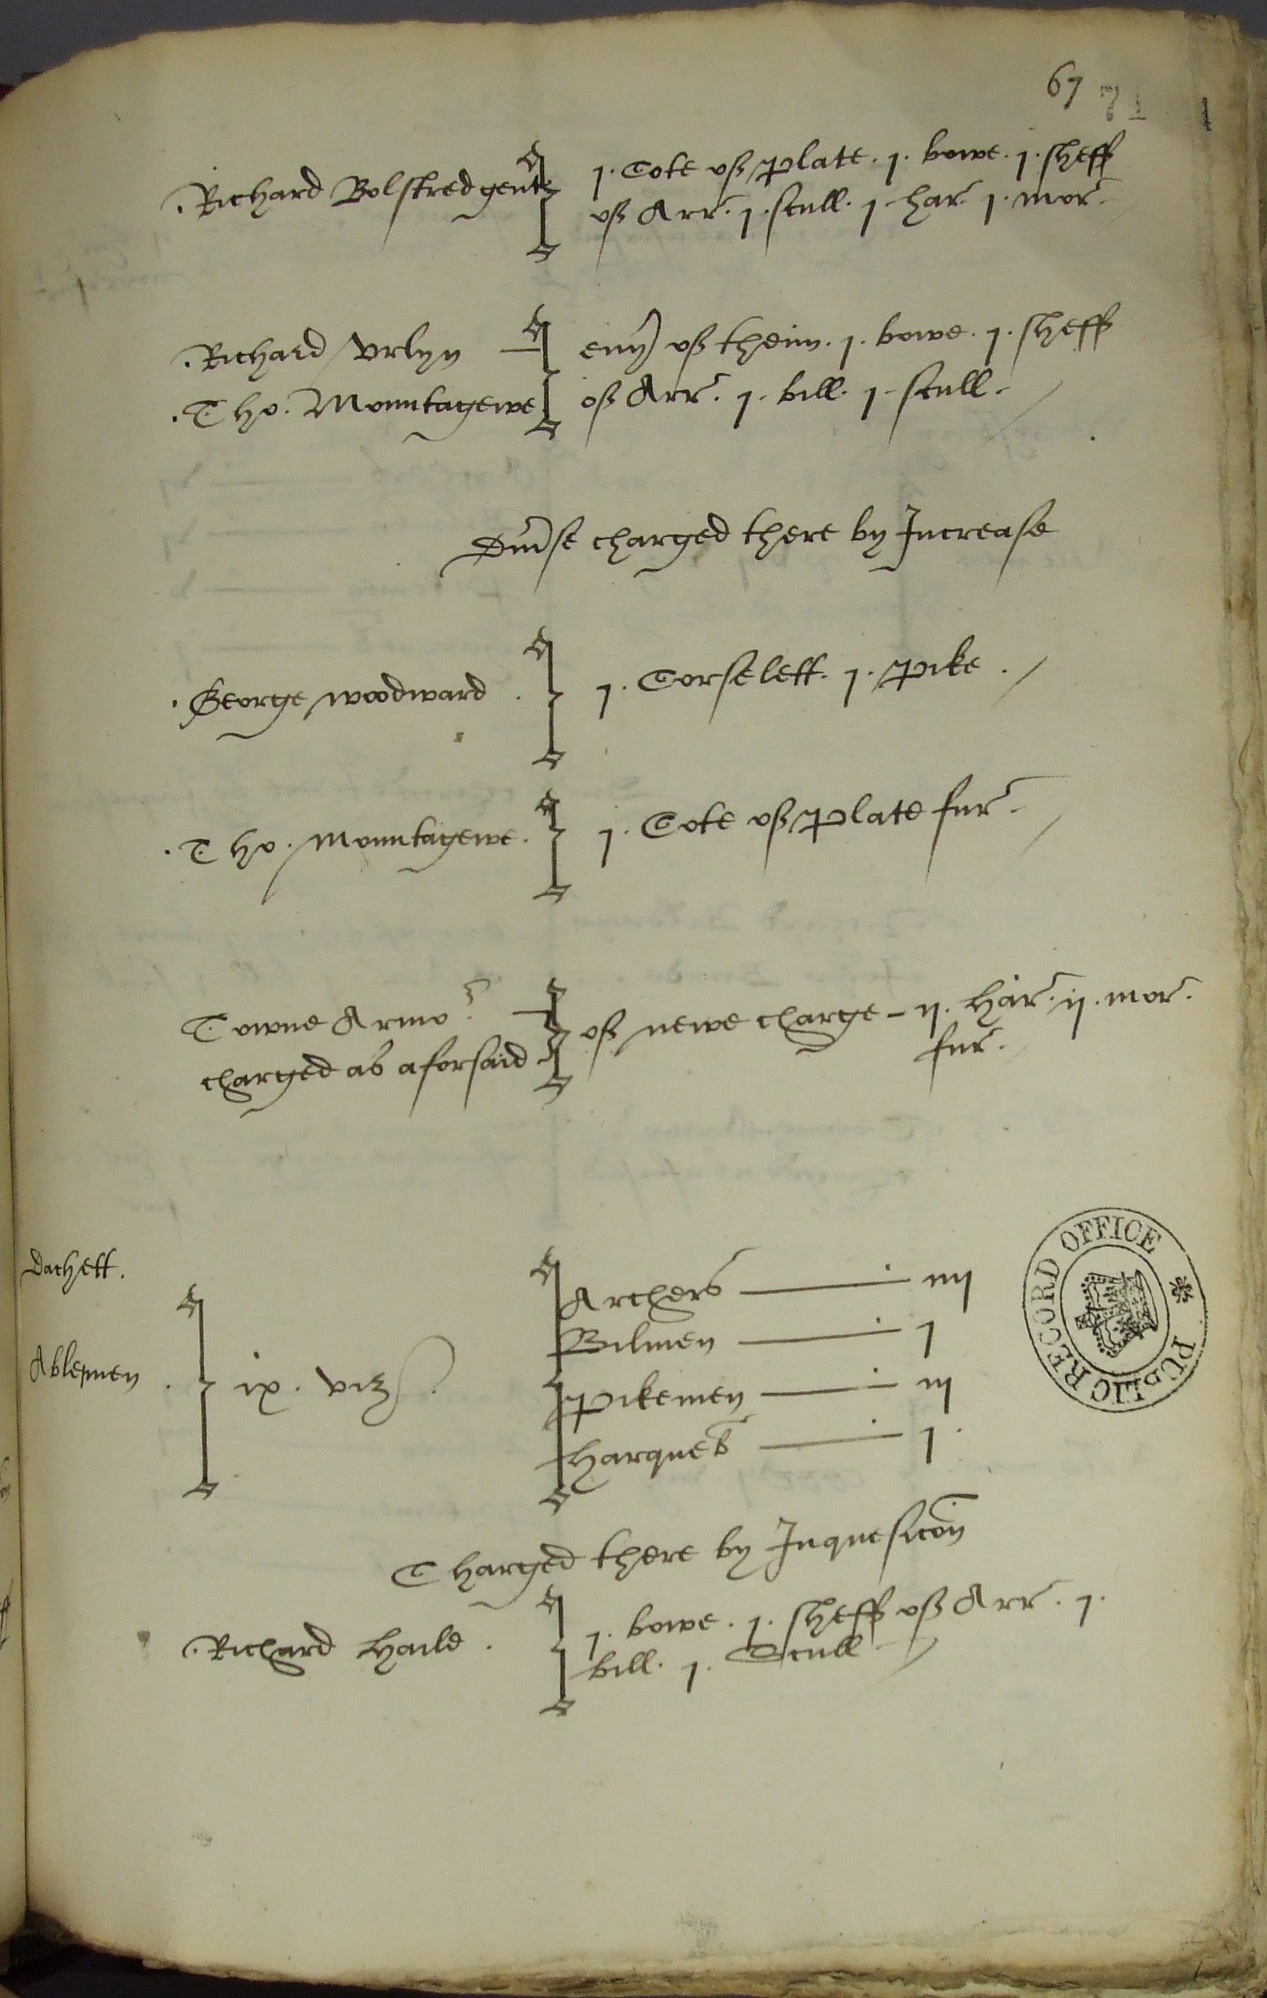 67 71
Richard Bolstred gent
j. Cote of plate. j. bowe. j. sheff
of Arr. j. scull. j. har. j. mor.
Richard Vrlyn
Tho. Monntagewe
eny of them. j. bowe. j. sheff
of Arr. j. bill. j. scull.
Diuse charged there by Increase
George woodward
j. Corselett. j. pike.
Tho. Monntagewe.
j. Cote of plate fur.
Towne Armor
charged as aforsaid
of newe charge - ij. har. ij. mor.
fur.
Dachett.
Ablemen
ix. viz
Archers iiij
Bilmen j
Pikemen iij
Harqueb j
Charged there by Inquesicon
Richard Haile.
j. bowe. j. sheff of Arr. j.
bill. j. Scull
PUBLIC RECORD OFFICE